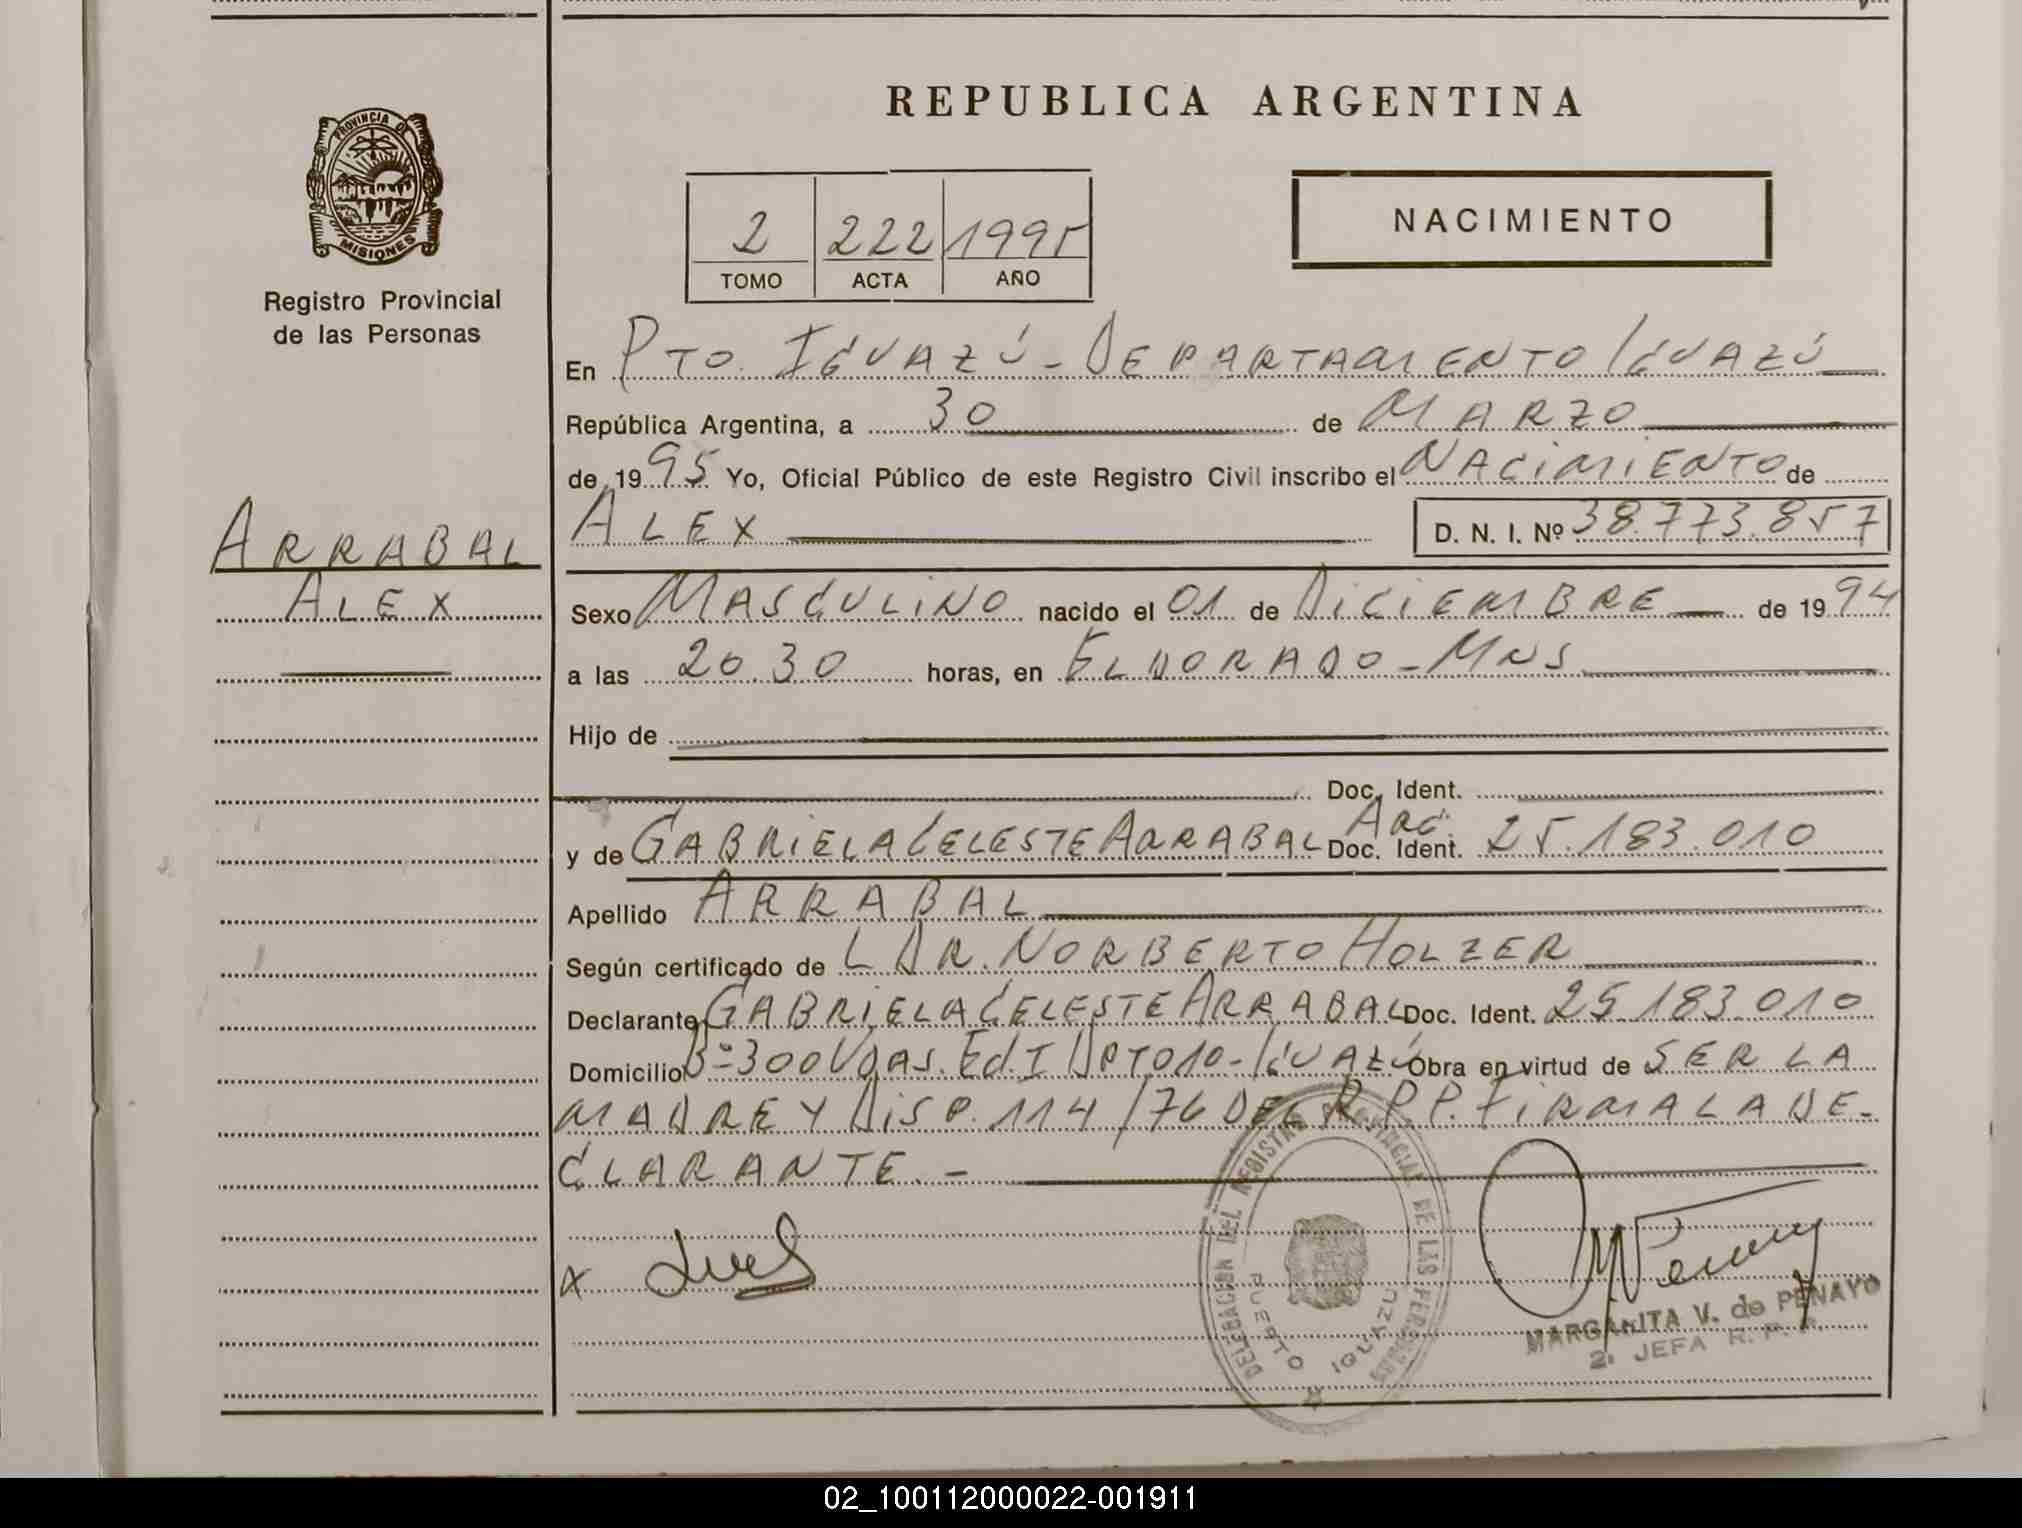 REPUBLICA ARGENTINA
PROVINCIA DE
MISIONES
Registro Provincial
de las Personas
2 222 1995
TOMO ACTA AÑO
NACIMIENTO
En PTO. IGUAZÚ - DEPARTAMENTO IGUAZÚ
República Argentina, a 30 de MARZO
de 1995 Yo, Oficial Público de este Registro Civil inscribo el NACIMIENTO de
ARRABAL
ALEX
ALEX D. N. I. Nº 38.773.857
Sexo MASCULINO nacido el 01 de DICIEMBRE de 1994
a las 20.30 horas, en ELDORADO - MNS
Hijo de
Doc. Ident.
y de GABRIELA CELESTE ARRABAL Doc. Ident. ARG. 25.183.010
Apellido ARRABAL
Según certificado de L DR. NORBERTO HOLZER
Declarante GABRIELA CELESTE ARRABAL Doc. Ident. 25.183.010
Domicilio B= 300 VDAS. Ed. I DPTO 10 - IGUAZÚ Obra en virtud de SER LA
MADRE Y DISP. 114/76 DEL R.P.P. FIRMA LA DE-
CLARANTE. -
x
DELEGACION DEL REGISTRO PROVINCIAL DE LAS PERSONAS
PUERTO IGUAZU
MARGARITA V. de PENAYO
2ª JEFA R. P. P.
02_100112000022-001911